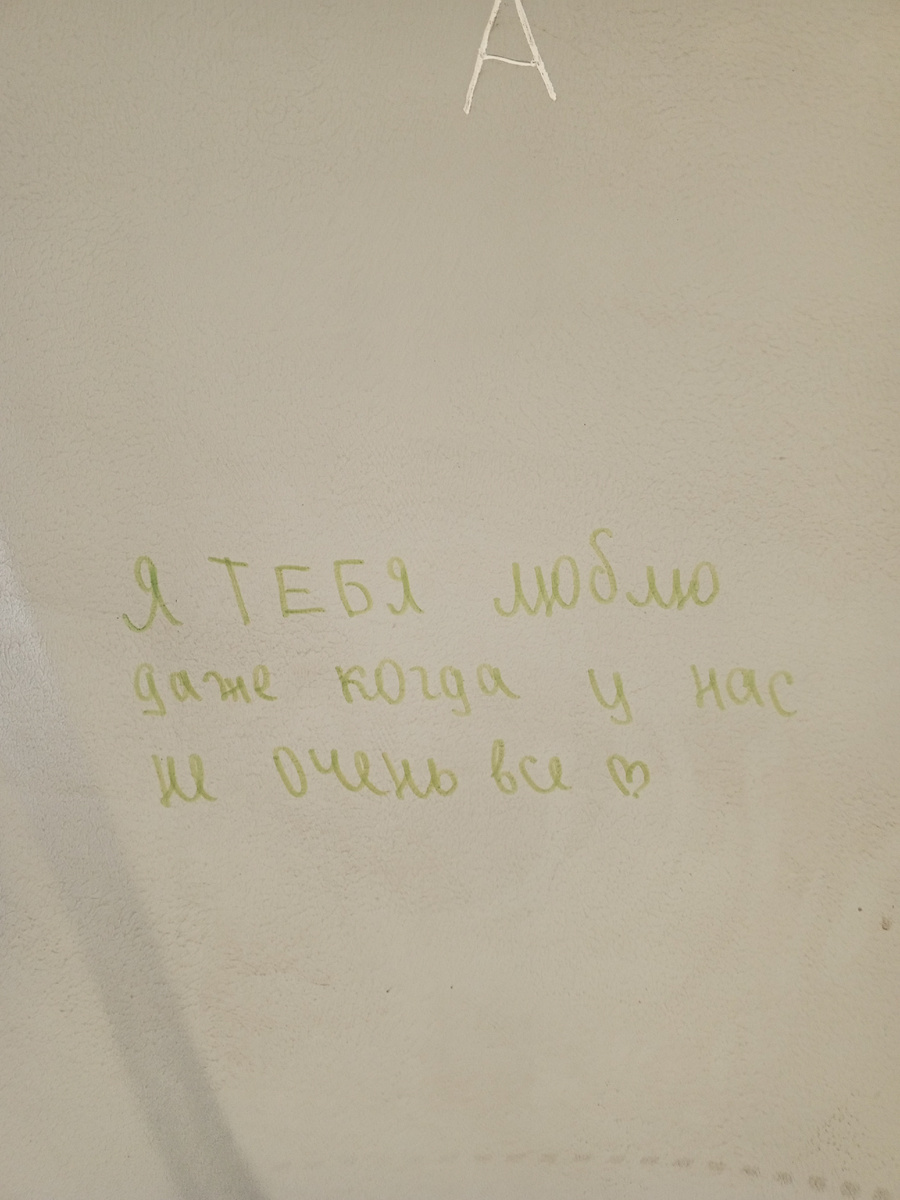 А
Я ТЕБЯ люблю
даже когда у нас
не очень все ♡